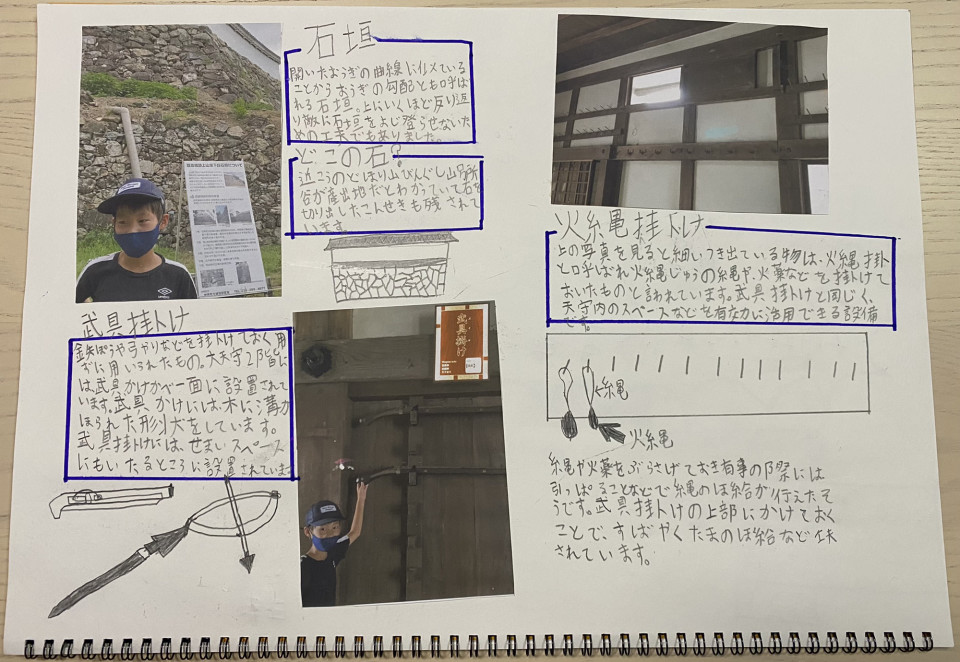 石垣
開いたおうぎの曲線に似ている
ことからおうぎの勾配とも呼ば
れる石垣。上にいくほど反り返
り敵に石垣をよじ登らせないた
めの工夫でもありました。
どこの石?
近こうのとほり山びんぐし山別所
谷が産出地だとわかっていて石を
切り出したこんせきも残されて
います。
武具掛け
鉄ぽうややりなどを掛けておく用
すに用いられたもの。大天守2階に
は武具かけがべ一面に設置されて
います。武具かけには、木に溝が
ほられた形状をしています。
武具掛けには、せまいスペース
にもいたるところに設置されていま
武具掛け
火縄掛け
上の写真を見ると細いつき出ている物は、火縄掛
と呼ばれ火縄じゅうの縄や、火薬などを掛けて
おいたものと言われています。武具掛けと同じく、
天守内のスペースなどを有なかに活用できる設備
です。
縄
火縄
縄や火薬をぶらさげておき有事の際には
引っぱることなどで縄のほ給が行えたそ
うです。武具掛けの上部にかけておく
ことで、すばやくたまのほ給など工夫
されています。